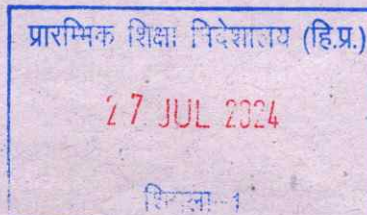 प्रारम्भिक शिक्षा निदेशालय (हि.प्र.)
27 JUL 2024
शिमला-1